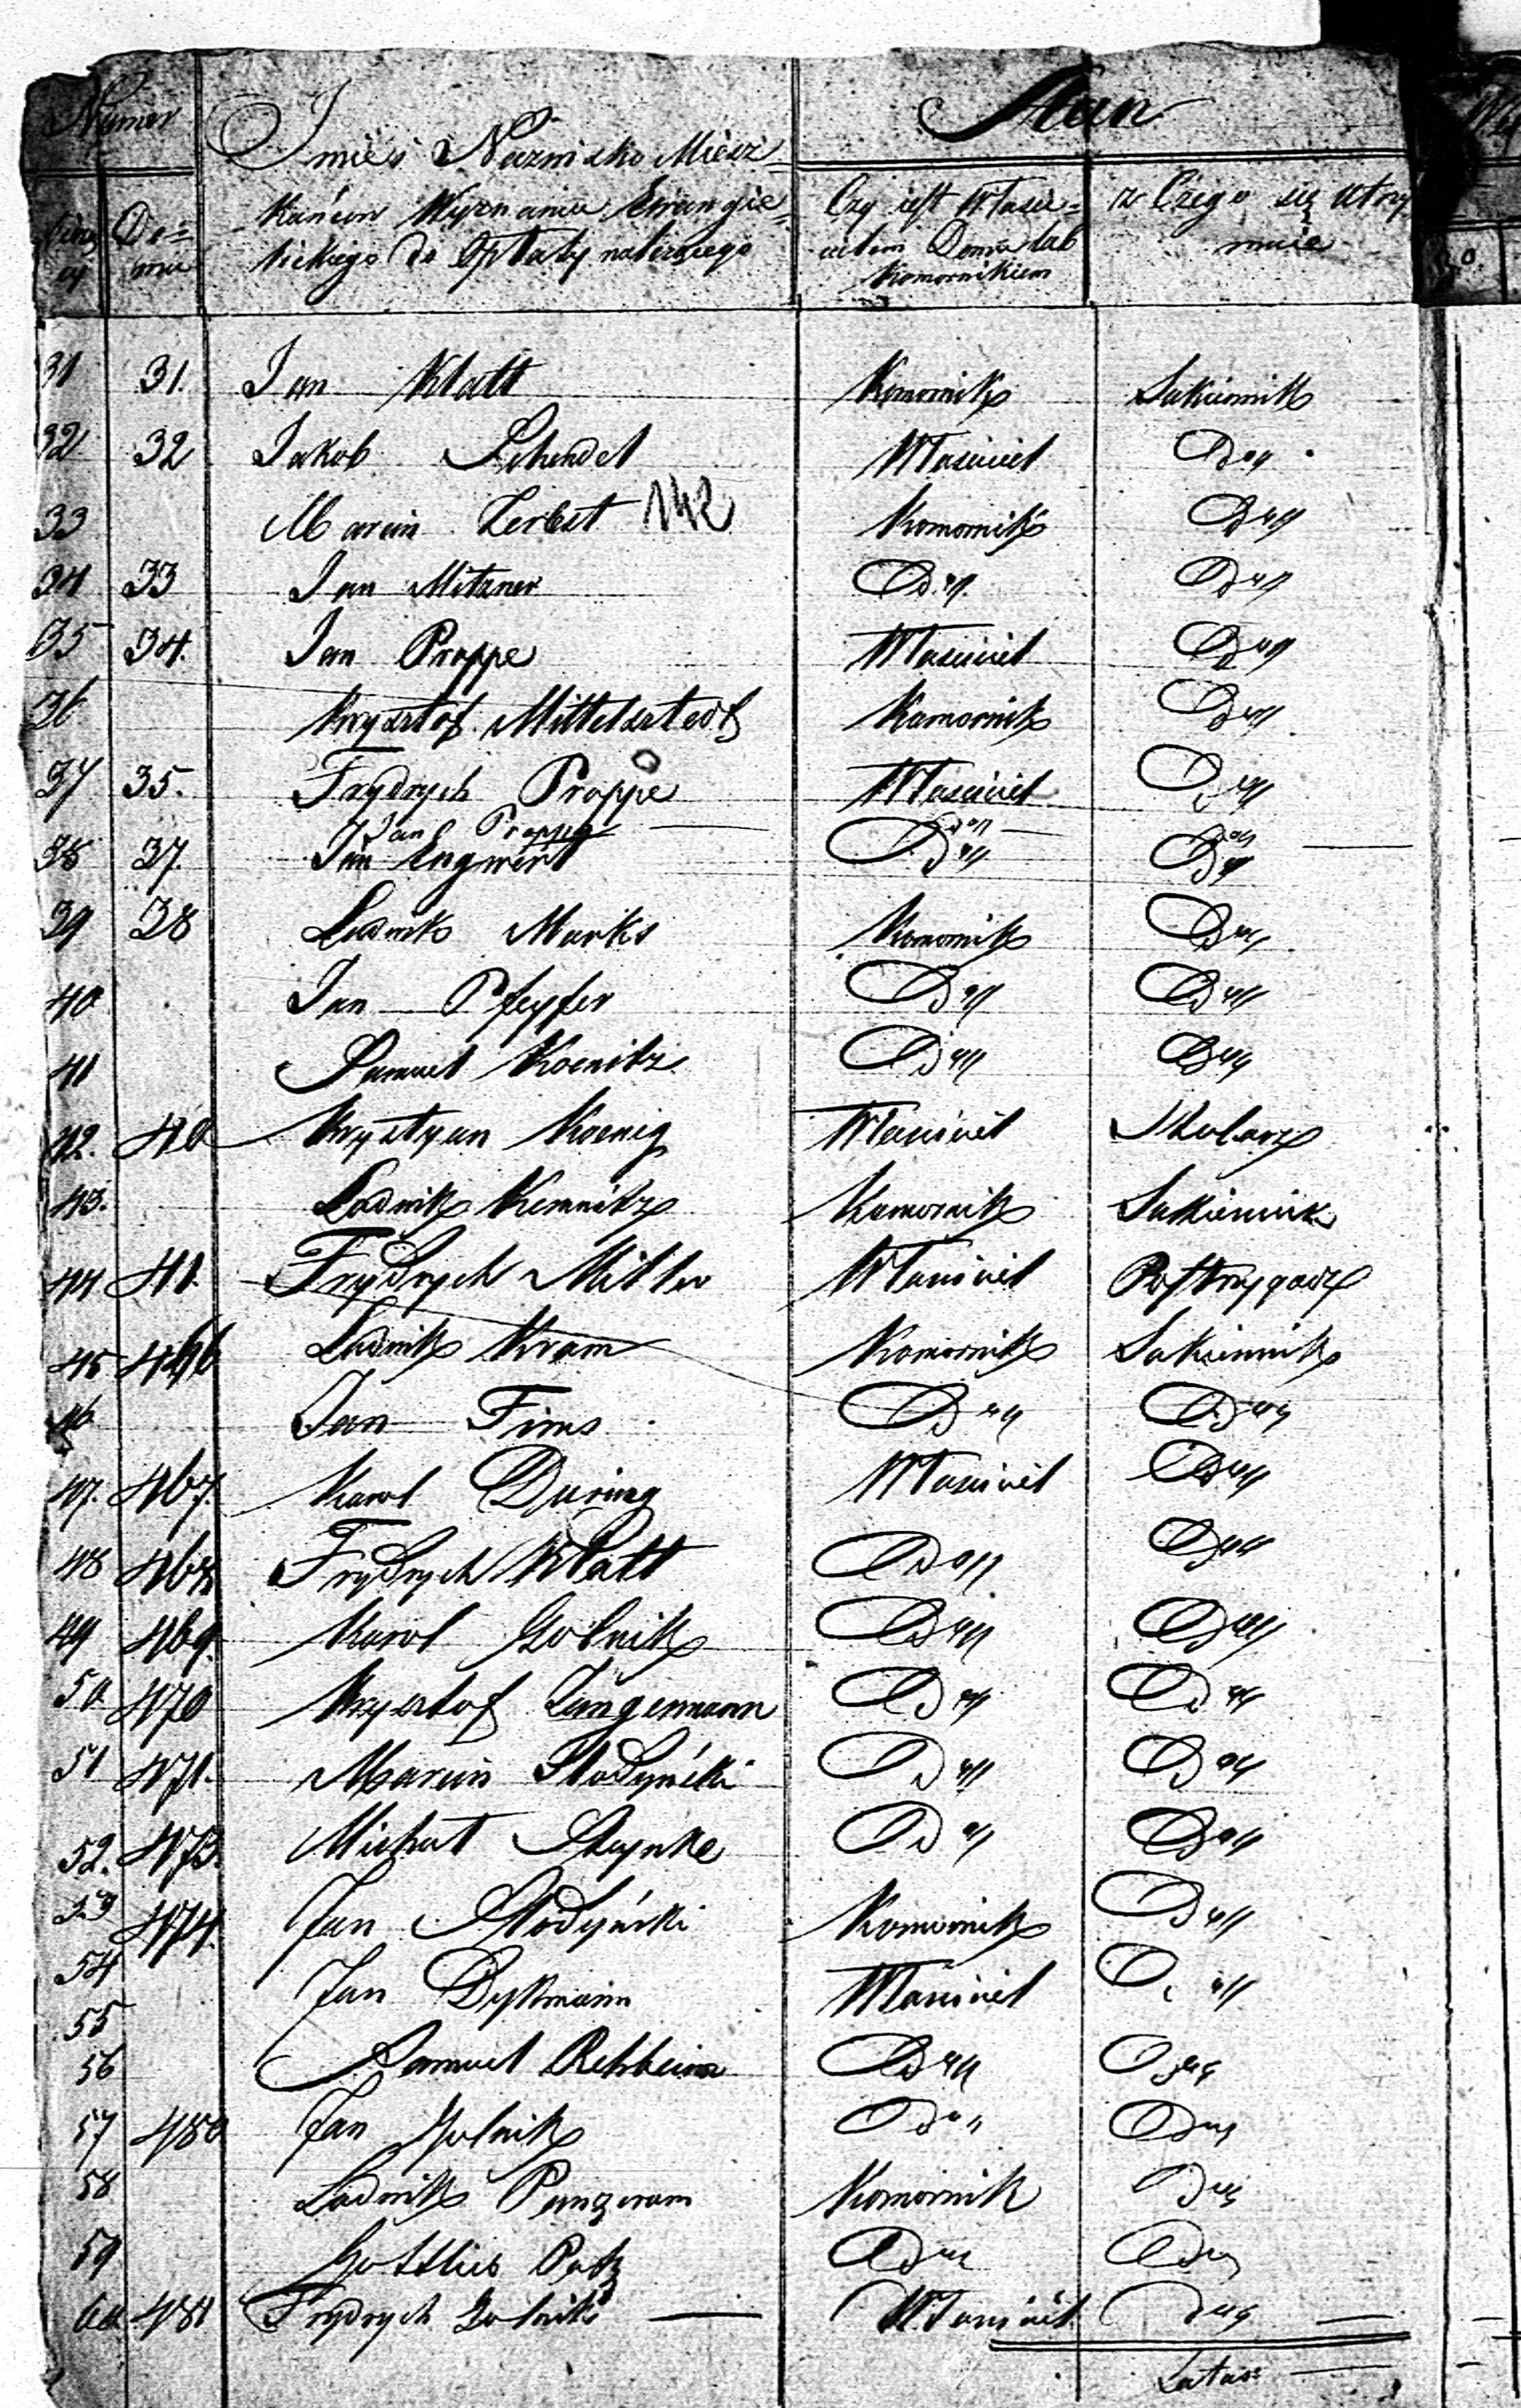 Numer
Imie i Nazwisko Miesz=
Stan
Do=
mu
kańców Wyznania Ewangie=
lickiego do Opłaty należącego
Czy jest Właści=
cielem Domu lub
Komornikiem
z Czego się utrzy
muie
31 31. Jan Klatt Komornik Sukiennik
32 32 Jakob Schendel Właściciel Dtto
33 Marcin Zerbst 142 Komornik Dtto
34 33 Jan Mitzner Dtto Dtto
35 34. Jan Proppe Właściciel Dtto
36 Krysztof Mittelsztedt Komornik Dtto
37 35. Frydrych Proppe Właściciel Dtto
Jan Proppe Dtto Dtto
38 37. Jan Engwert Dtto Dtto
39 38 Ludwik Marks Komornik Dtto
40 Jan Pfeyfer Dtto Dtto
41 Samuel Koenitz Dtto Dtto
42. 40 Krystyan Koenig Właściciel Stolarz
43. Ludwik Kemnitz Komornik Sukiennik
44 41. Frydrych Miller Właściciel Postrzygacz
45 466 Ludwik Kram Komornik Sukiennik
46 Jan Fims Dtto Dtto
47. 467. Karol During Właściciel Dtto
48 468 Frydrych Klatt Dtto Dtto
49 469. Karol Golnik Dtto Dtto
50 470 Krysztof Jungermann Dtto Dtto
51 471. Marcin Słodyński Dtto Dtto
52. 473. Michał Sztynke Dtto Dtto
53 474. Jan Słodyński Komornik Dtto
54 Jan Dykmann Właściciel Dtto
55
56 Samuel Rehbein Dtto Dtto
57 480 Jan Golnik Dtto Dtto
58 Ludwik Pangeram Komornik Dtto
59 Gottlieb Patz Dtto Dtto
60 481 Frydrych Golnik Właściciel Dtto
Latus